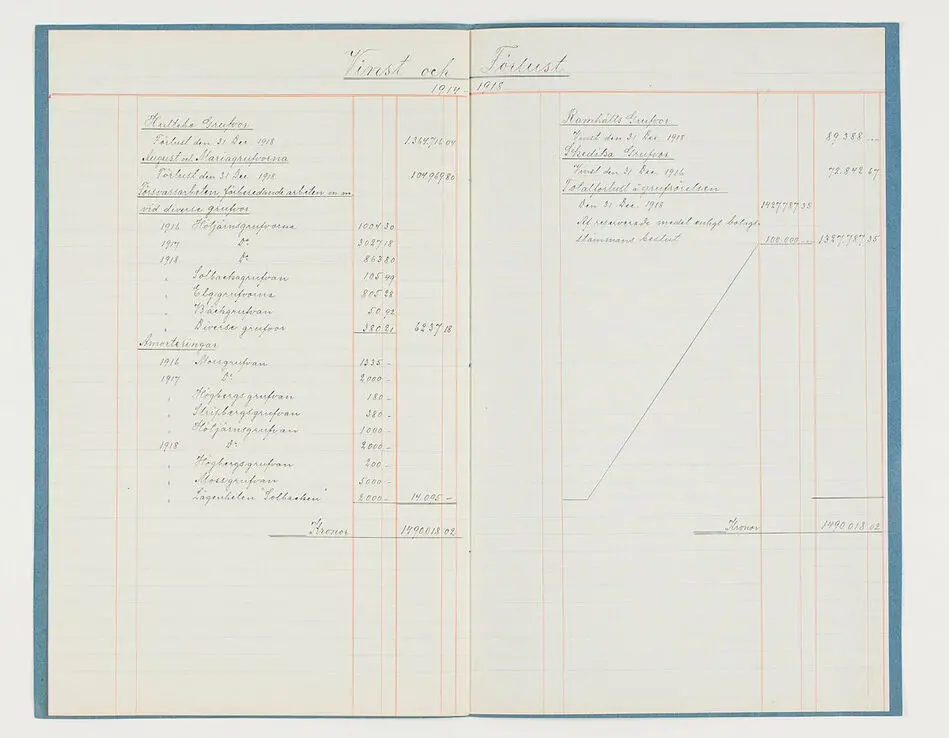 Vinst och Förlust
1914-1918
Hultebo Grufvor
Förlust den 31 Dec. 1918 1.364.716 04
August och Mariagrufvorna
Förlust den 31 Dec. 1918 104.969 80
Försvarsarbeten, förberedande arbeten m m
vid diverse grufvor
1916 Höltjärnsgrufvorna 1004 30
1917 Do 3027 18
1918 Do 863 80
" Solbacksgrufvan 105 49
" Elggrufvorna 805 28
" Bäckgrufvan 50 92
" Diverse grufvor 380 21 6237 18
Amorteringar
1916 Mossgrufvan 1335 -
1917 Do 2000 -
" Högbergsgrufvan 180 -
" Stripbergsgrufvan 380 -
" Höltjärnsgrufvan 1000 -
1918 Do 2000 -
" Högbergsgrufvan 200 -
" Mossgrufvan 5000 -
" Lägenheten "Solbacken" 2000 - 14.095 -
Kronor 1490.018 02
Ramhälls Grufvor
Vinst den 31 Dec. 1918 89.388 -
Skedika Grufvor
Vinst den 31 Dec. 1916 72.842 67
Totalförlust å grufrörelsen
den 31 Dec. 1918 1427.787 35
Af reserverade medel enligt bolags-
stämmans beslut 100.000 - 1327.787 35
Kronor 1490.018 02